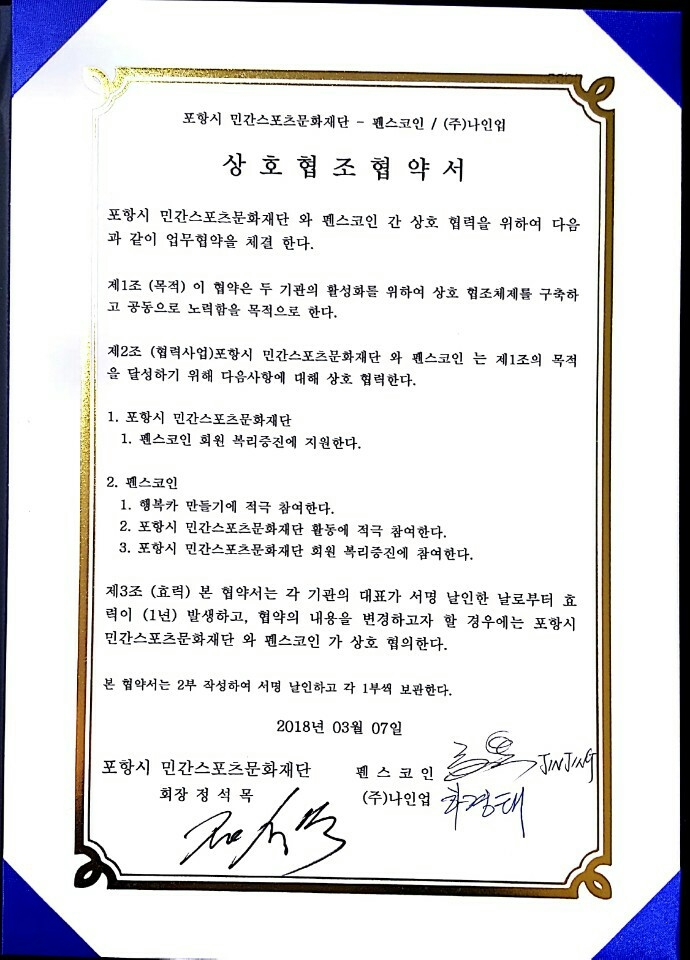 포항시 민간스포츠문화재단 - 펜스코인 / (주)나인업
상호협조협약서
포항시 민간스포츠문화재단 와 펜스코인 간 상호 협력을 위하여 다음
과 같이 업무협약을 체결 한다.
제1조 (목적) 이 협약은 두 기관의 활성화를 위하여 상호 협조체제를 구축하
고 공동으로 노력함을 목적으로 한다.
제2조 (협력사업)포항시 민간스포츠문화재단 와 펜스코인 는 제1조의 목적
을 달성하기 위해 다음사항에 대해 상호 협력한다.
1. 포항시 민간스포츠문화재단
1. 펜스코인 회원 복리증진에 지원한다.
2. 펜스코인
1. 행복카 만들기에 적극 참여한다.
2. 포항시 민간스포츠문화재단 활동에 적극 참여한다.
3. 포항시 민간스포츠문화재단 회원 복리증진에 참여한다.
제3조 (효력) 본 협약서는 각 기관의 대표가 서명 날인한 날로부터 효
력이 (1년) 발생하고, 협약의 내용을 변경하고자 할 경우에는 포항시
민간스포츠문화재단 와 펜스코인 가 상호 협의한다.
본 협약서는 2부 작성하여 서명 날인하고 각 1부씩 보관한다.
2018년 03월 07일
포항시 민간스포츠문화재단
회장 정석목
펜스코인 JINJING
(주)나인업